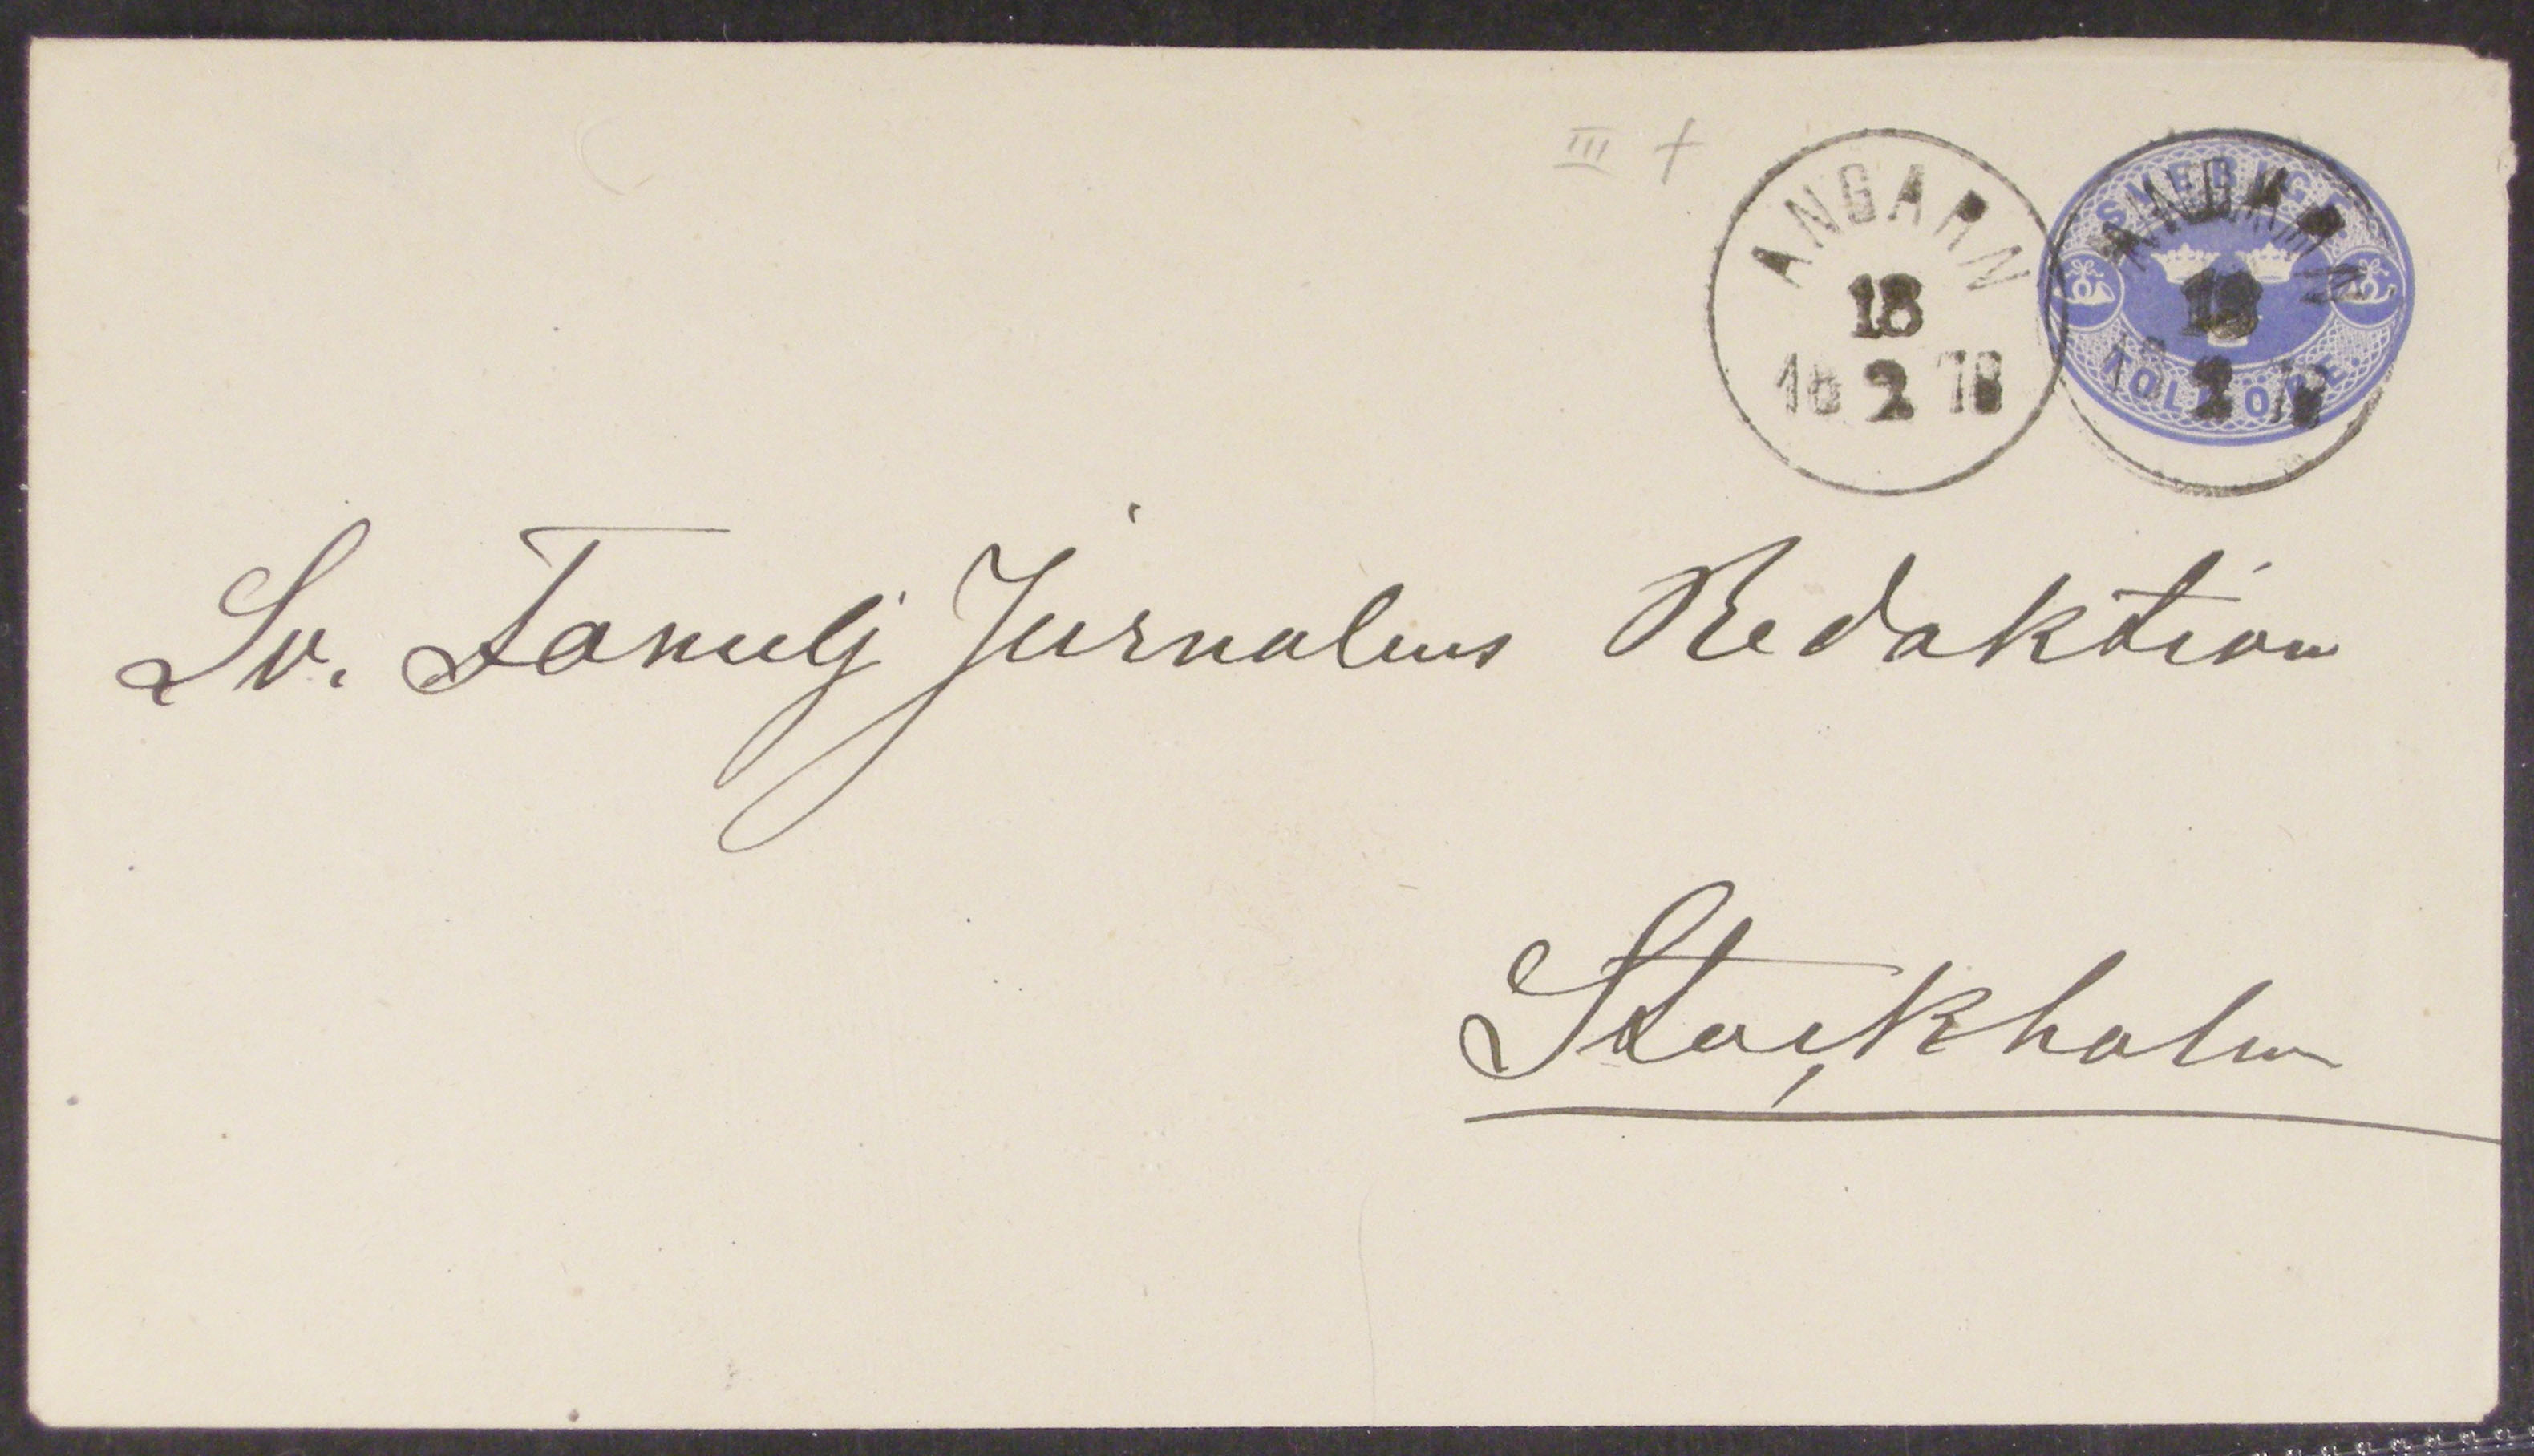 III +
ANGARN
18
18 2 78
SVERIGE.
TOLF ÖRE.
ANGARN
18
18 2 78
Sv. Familj Jurnalens Redaktion
Stockholm